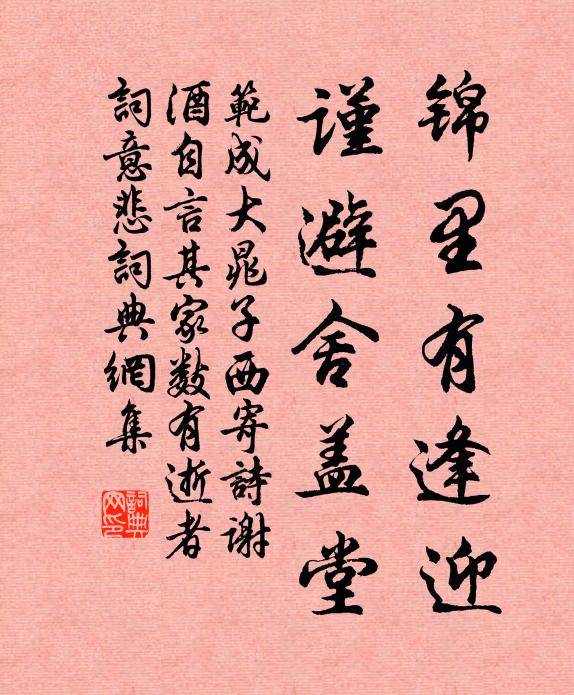 锦里有逢迎
谨避舍盖堂
範成大晁子西寄詩謝
酒自言其家数有逝者
詞意悲詞典網集
詞典网印